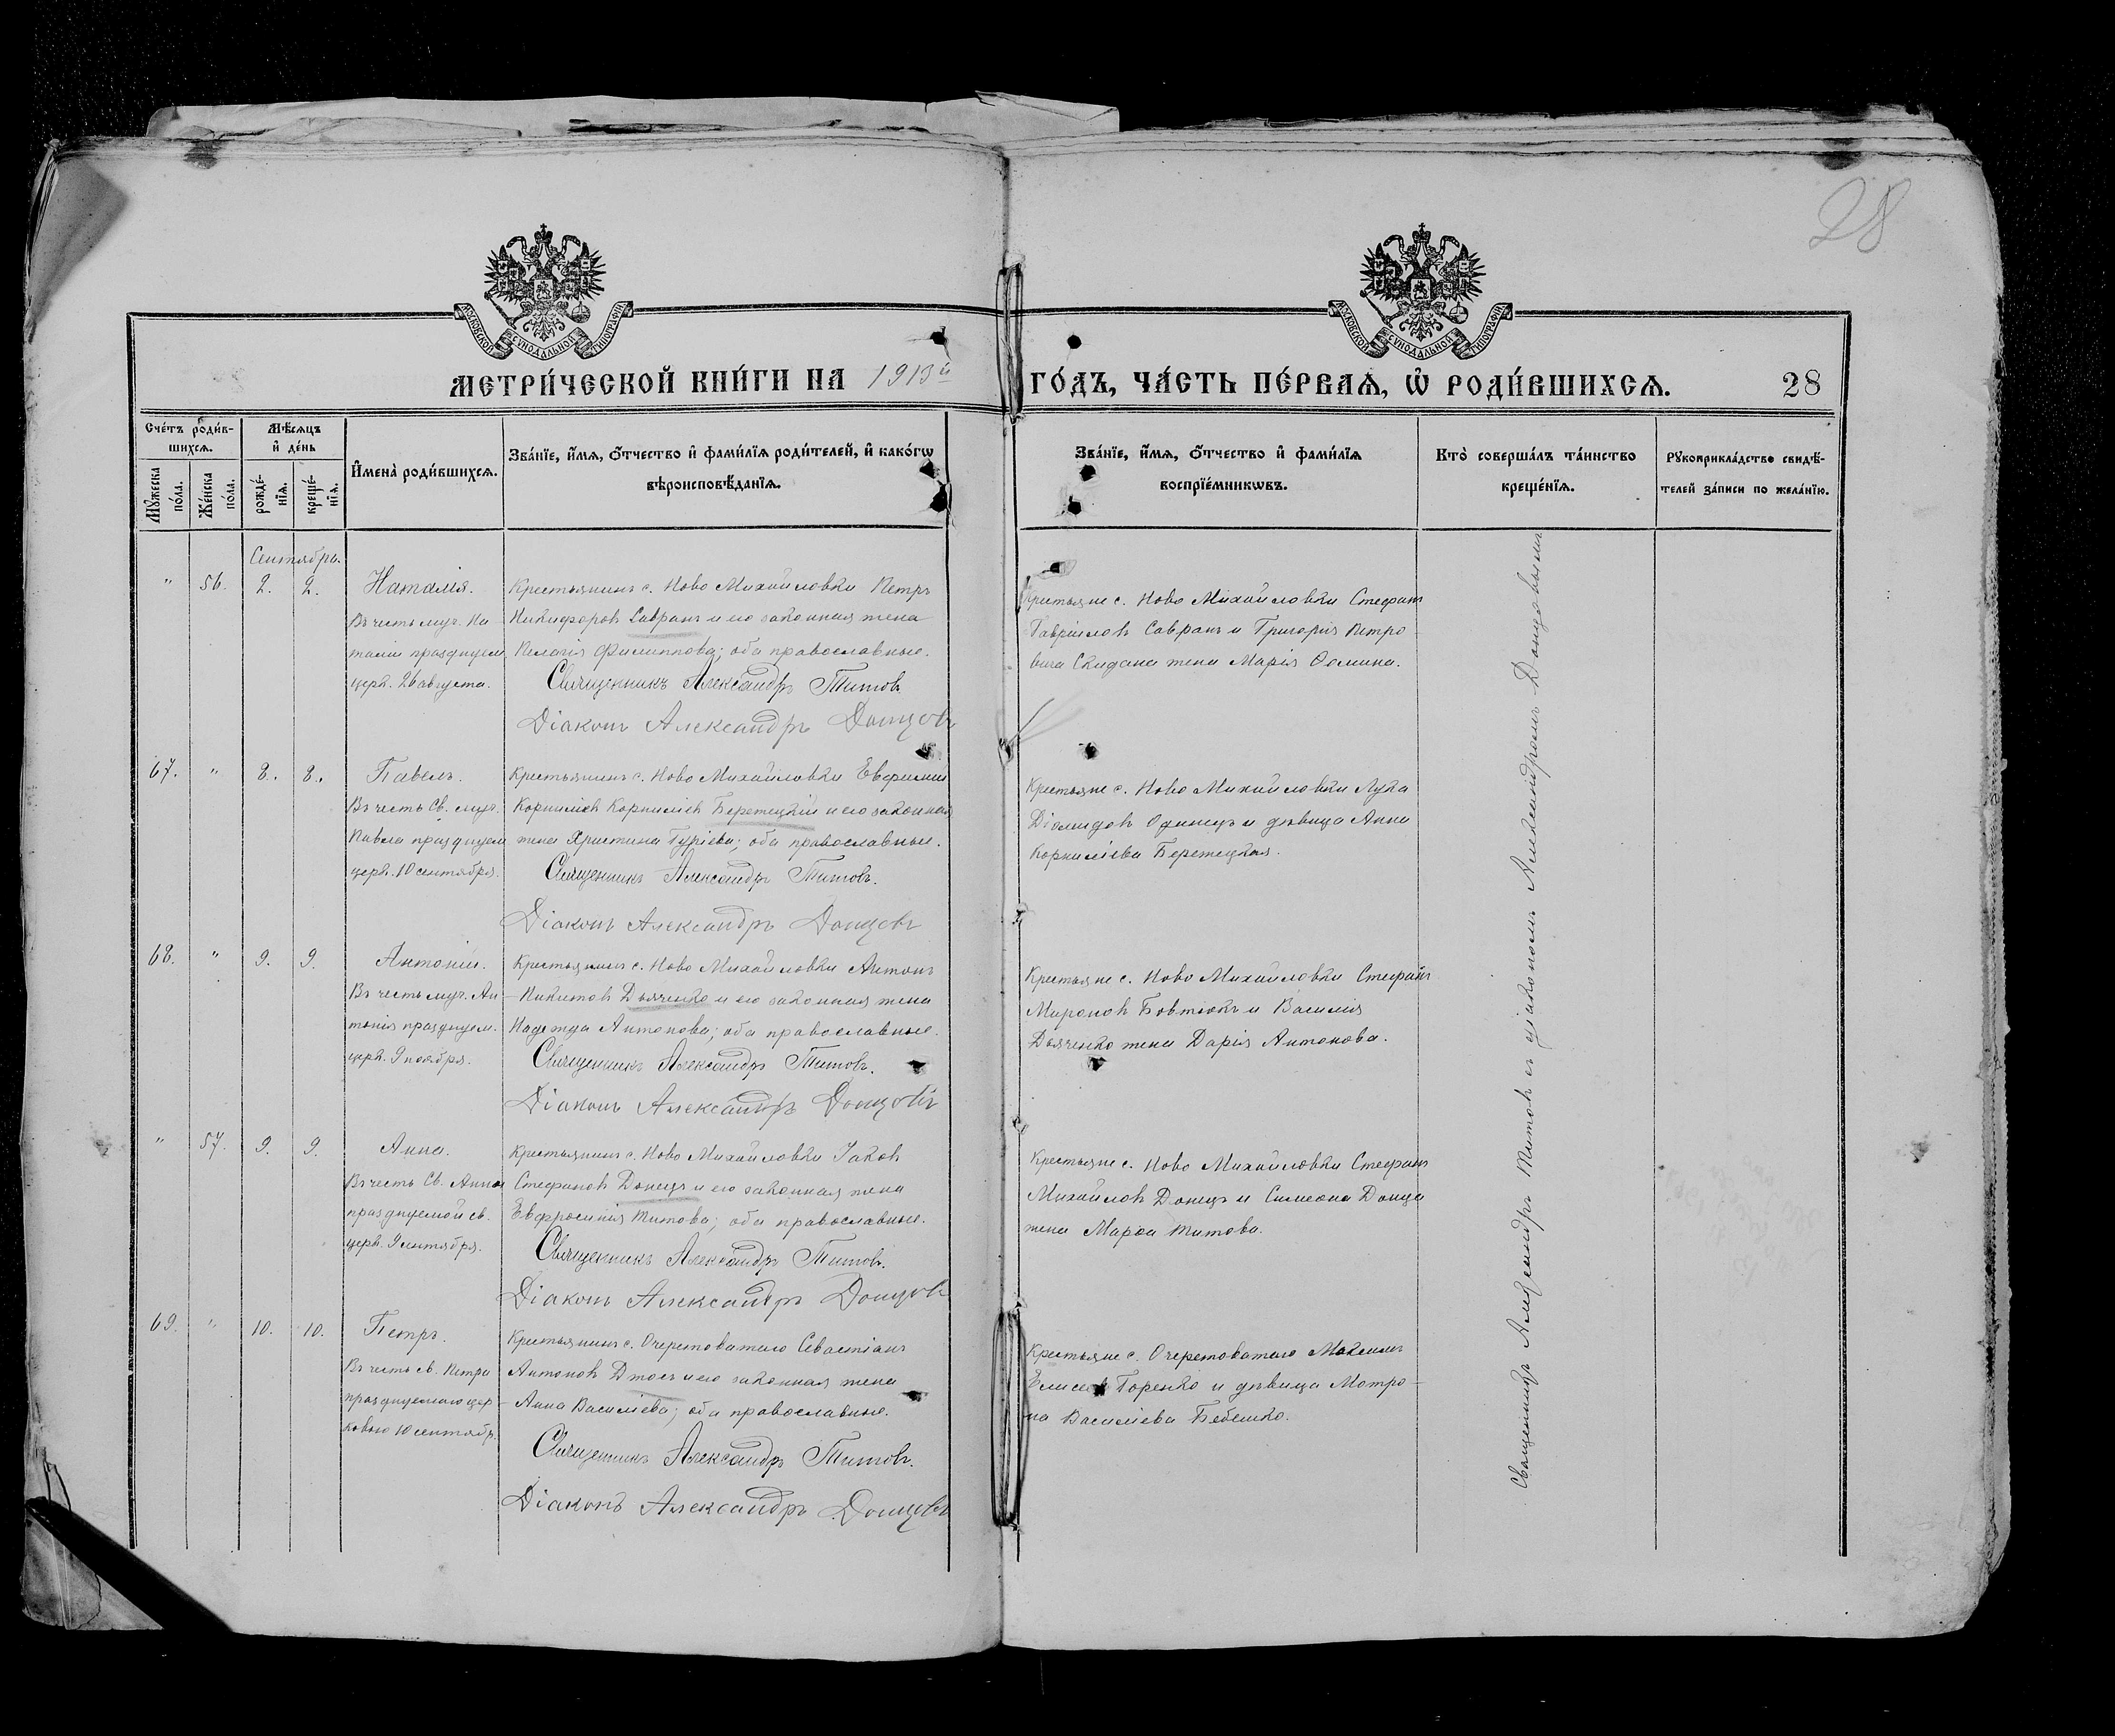 28
МОСКОВСКОЙ СѴНОДАЛЬНОЙ ТИПОГРАФІИ
МОСКОВСКОЙ СѴНОДАЛЬНОЙ ТИПОГРАФІИ
МЕТРИ́ЧЕСКОЙ КНИ́ГИ НА 1913й ГО́ДЪ, ЧА́СТЬ ПЕ́РВАѦ, Ѡ҆ РОДИ́ВШИХСѦ. 28
Сче́тъ роди́в-
шихсѧ.
Мꙋ́жеска
по́ла.
Же́нска
по́ла.
Мѣ́сѧцъ
и҆ де́нь
рожде́-
нїѧ.
креще́-
нїѧ.
И҆мена̀ роди́вшихсѧ.
Зва́нїе, и҆́мѧ, ѻ҆́тчество и҆ фами́лїѧ роди́телей, и҆ како́гѡ
вѣроисповѣ́данїѧ.
Зва́нїе, и҆́мѧ, ѻ҆́тчество и҆ фами́лїѧ
воспрїе́мникѡвъ.
Кто̀ соверша́лъ та́инство
креще́нїѧ.
Рꙋкоприкла́дство свидѣ́-
телей за́писи по жела́нїю.
Сентябрь.
" 56. 2. 2. Наталія.
Въ честь муч. На
таліи празднуем
церк. 26 августа.
Крестьянинъ с. Ново Михайловки Петръ
Никифоровъ Савранъ и его законная жена
Пелагія Филиппова; оба православные.
Священникъ Александръ Титовъ
Діаконъ Александръ Донцовъ
Крестьяне с. Ново Михайловки Стефанъ
Гавріиловъ Савранъ и Григорія Петро
вича Скидана жена Марія Ѳомина.
67. " 8. 8. Павелъ.
Въ честь Св. муч.
Павла празднуем
церк. 10 сентября.
Крестьянинъ с. Ново Михайловки Евфимій
Корниліевъ Корниліевъ Березецкій и его законная
жена Христина Гуріева; оба православные.
Священникъ Александръ Титовъ.
Діаконъ Александръ Донцовъ
Крестьяне с. Ново Михайловки Лука
Діомидовъ Одинецъ и дѣвица Анна
Корниліева Березецкая.
68. " 9. 9. Антоній.
Въ честь муч. Ан
тонія празднуем.
церк. 9 ноября.
Крестьянинъ с. Ново Михайловки Антонъ
Никитовъ Дьяченко и его законная жена
Надежда Антонова; оба православные.
Священникъ Александръ Титовъ.
Діаконъ Александръ Донцовъ
Крестьяне с. Ново Михайловки Стефанъ
Мироновъ Бовтюкъ и Василія
Дьяченко жена Дарія Антонова.
" 57. 9. 9. Анна.
Въ честь Св. Анны
празднуемой св.
церк. 9 сентября.
Крестьянинъ с. Ново Михайловки Іаковъ
Стефановъ Донецъ и его законная жена
Евфросинія Титова; оба православные.
Священникъ Александръ Титовъ.
Діаконъ Александръ Донцовъ
Крестьяне с. Ново Михайловки Стефанъ
Михайловъ Донецъ и Симеона Донца
жена Марѳа Титова.
69. " 10. 10. Петръ.
Въ честь св. Петра
празднуемаго цер
ковью 10 сентябр.
Крестьянинъ с. Очеретоватаго Севастіанъ
Антоновъ и его законная жена
Анна Василіева; оба православные.
Священникъ Александръ Титовъ.
Діаконъ Александръ Донцовъ
Крестьяне с. Очеретоватаго Максимъ
Елисеевъ Горенко и дѣвица Мотро-
на Василіева Бебешко.
Священникъ Александръ Титовъ съ діакономъ Александромъ Донцовымъ